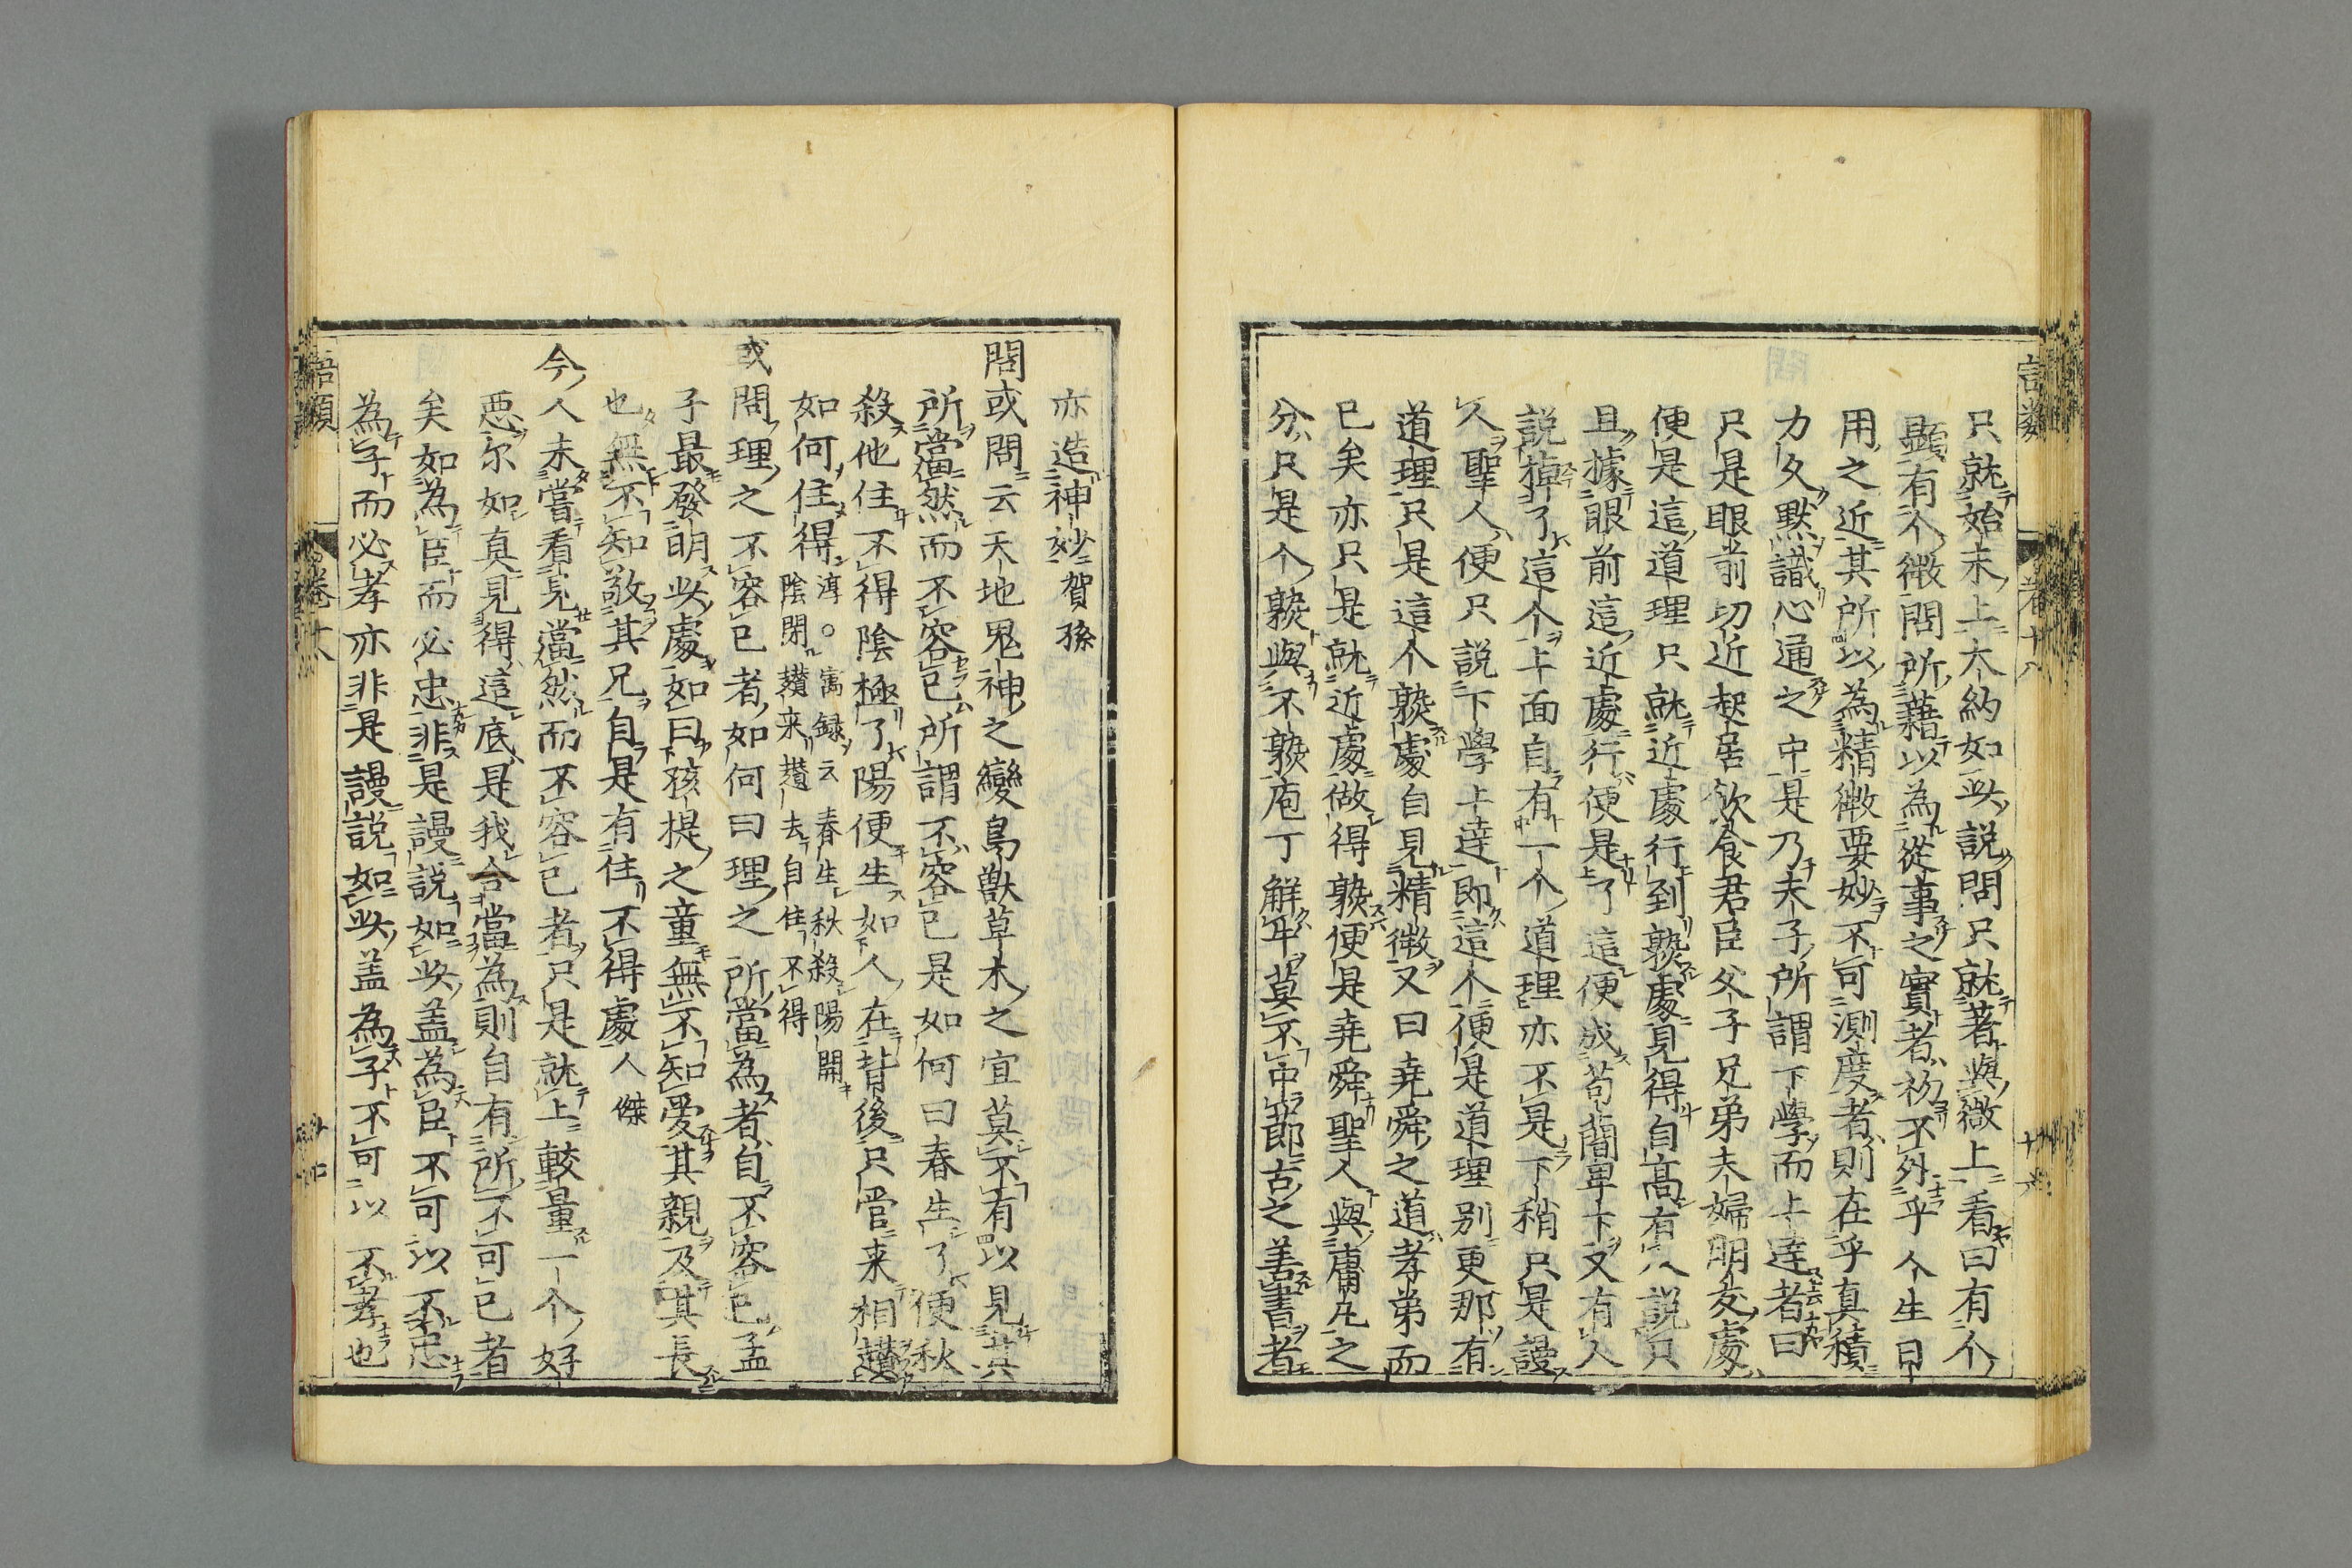 只就始末上大納如此說問只就著與微上看曰有个
顯有个微問所藉以為從事之實者初不外乎人生日
用之近其所以為精微要妙不可測度者則在乎真積
力久默識心通之中是乃夫子所謂下學而上達者曰
只是眼前切近起居飲食君臣父子兄弟夫婦朋友處
便是這道理只就近處行到熟處見得自高有人說只
且據眼前這近處行便是了這便成苟簡卑下又有人
說掉了這个上面自有一个道理亦不是下稍只是謾
人聖人便只說下學上達即這个便是道理別更那有
道理只是這个熟處自見精微又曰堯舜之道孝弟而
已矣亦只是就近處做得熟便是堯舜聖人與庸凡之
分只是个熟與不熟庖丁解牛莫不中節古之善書者
亦造神妙 賀孫
問或問云天地鬼神之變鳥獸草木之宜莫不有以見其
所當然而不容已所謂不容已是如何曰春生了便秋
殺他住不得陰極了陽便生如人在背後只管来相趲
如何住得 淳○寓録云春生秋殺陽開
陰閉趲来趲去自住不得
或問理之不容已者如何曰理之所當為者自不容已孟
子最發明此處如曰孩提之童無不知愛其親及其長
也無不知敬其兄自是有住不得處 人傑
今人未嘗看見當然而不容已者只是就上較量一个好
惡尔如真見得這底是我合當為則自有所不可已者
矣如為臣而必忠非是謾說如此盖為臣不可以不忠
為子而必孝亦非是謾說如此盖為子不可以不孝也
語類
卷十八